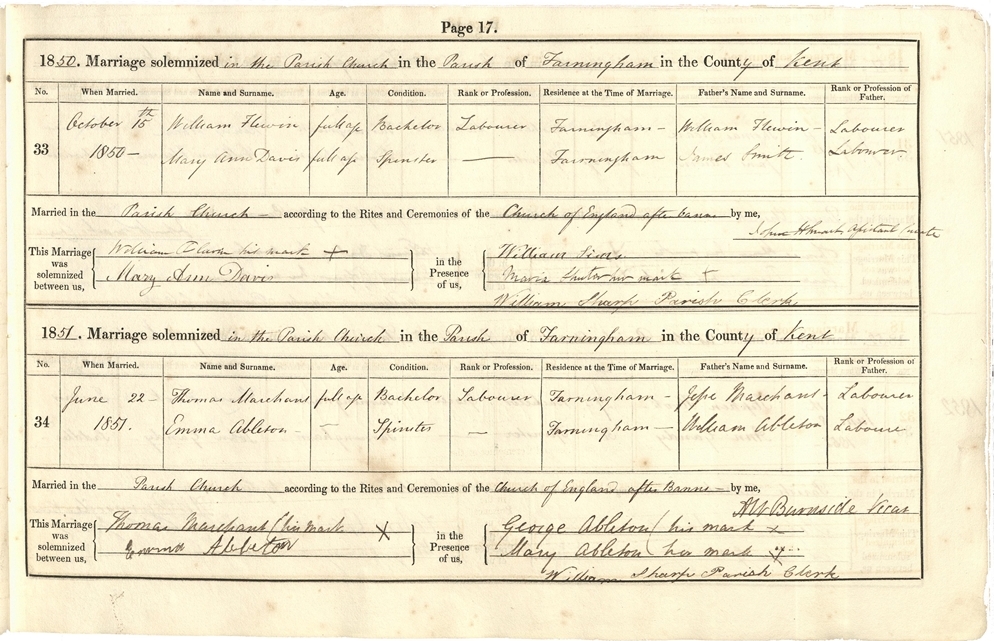 Page 17.
1850. Marriage solemnized in the Parish Church in the Parish of Farningham in the County of Kent
No. When Married. Name and Surname. Age. Condition. Rank or Profession. Residence at the Time of Marriage. Father's Name and Surname. Rank or Profession of Father.
33 October 15th 1850 –
William Flewin full age Bachelor Labourer Farningham – William Flewin – Labourer
Mary Ann Davis full age Spinster — Farningham James Smith. Labourer.
Married in the Parish Church – according to the Rites and Ceremonies of the Church of England after banns by me,
This Marriage was solemnized between us, in the Presence of us,
William Flewin his mark + William
Mary Ann Davis Maria her mark +
William Sharp Parish Clerk
1851. Marriage solemnized in the Parish Church in the Parish of Farningham in the County of Kent
No. When Married. Name and Surname. Age. Condition. Rank or Profession. Residence at the Time of Marriage. Father's Name and Surname. Rank or Profession of Father.
34 June 22 – 1851.
Thomas Marchant full age Bachelor Labourer Farningham – Jesse Marchant – Labourer
Emma Ableton – – Spinster — Farningham – William Ableton Laboure
Married in the Parish Church according to the Rites and Ceremonies of the Church of England after Banns – by me,
Burnside Vicar
This Marriage was solemnized between us, in the Presence of us,
Thomas Marchant (his mark X George Ableton (his mark x
Emma Ableton Mary Ableton (her mark x
William Sharp Parish Clerk